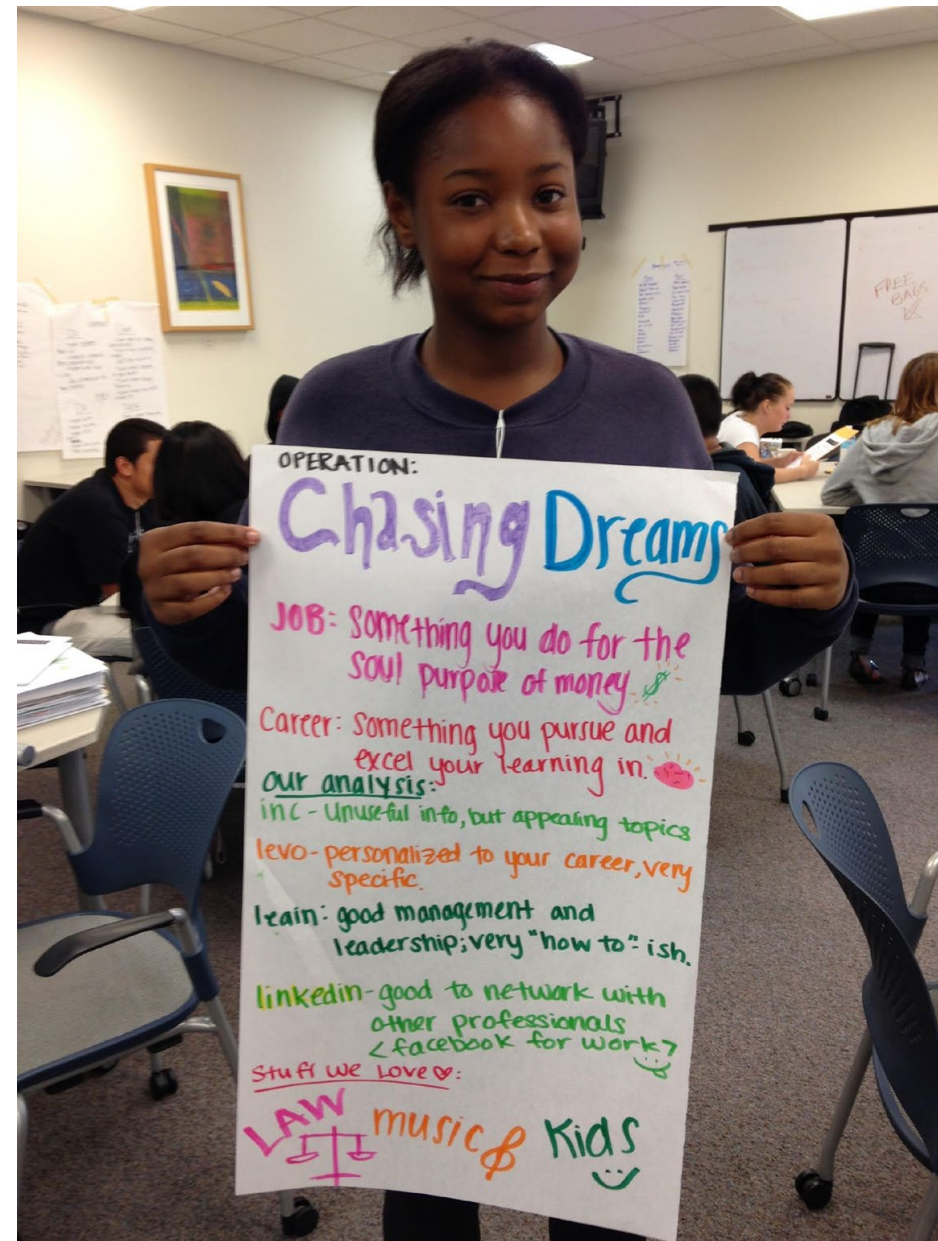 OPERATION:
Chasing Dreams
JOB: Something you do for the
soul purpose of money $
Career: Something you pursue and
excel your learning in.
our analysis:
inc - Unuseful info, but appealing topics
levo - personalized to your career, very
specific.
learn: good management and
leadership; very "how to"- ish.
linkedin - good to network with
other professionals
<facebook for work>
Stuff we Love ♡:
LAW music Kids
FREE
BAGS